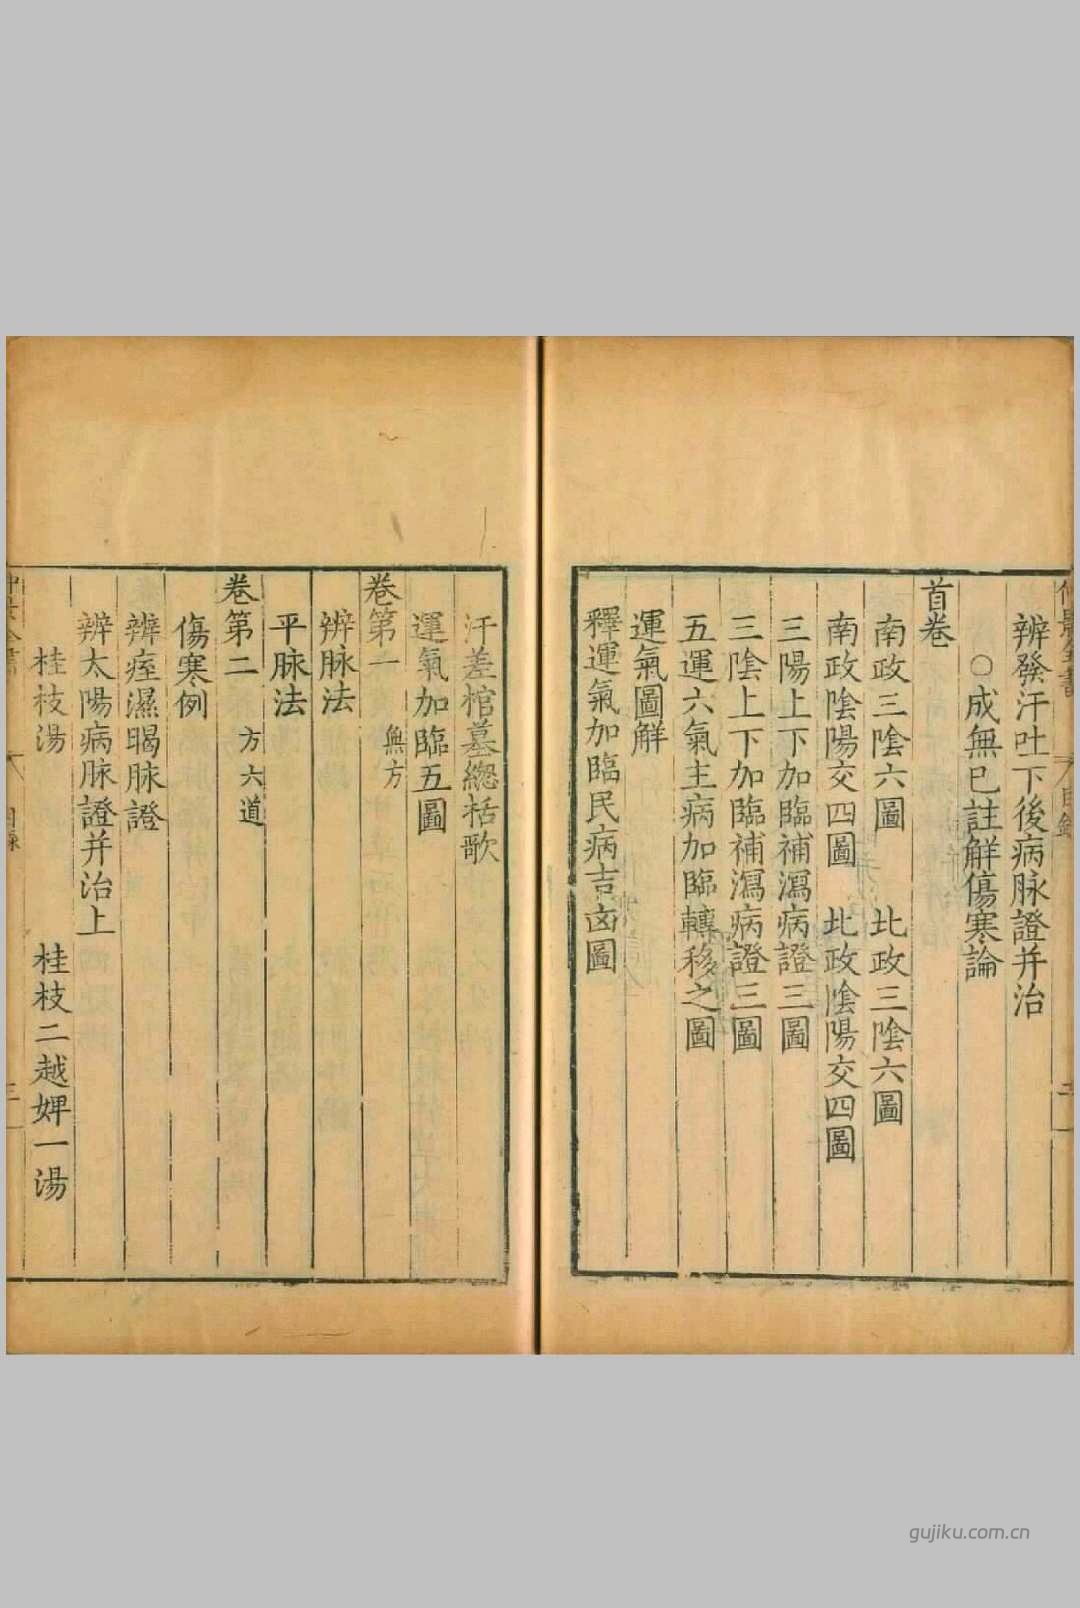 辨發汗吐下後病脉證并治
○成無已註解傷寒論
首卷
南政三陰六圖 北政三陰六圖
南政陰陽交四圖 北政陰陽交四圖
三陽上下加臨補瀉病證三圖
三陰上下加臨補瀉病證三圖
五運六氣主病加臨轉移之圖
運氣圖解
釋運氣加臨民病吉凶圖
汗差棺墓總括歌
運氣加臨五圖
卷第一 無方
辨脉法
平脉法
卷第二 方六道
傷寒例
辨痓濕暍脉證
辨太陽病脉證并治上
桂枝湯 桂枝二越婢一湯
gujiku.com.cn